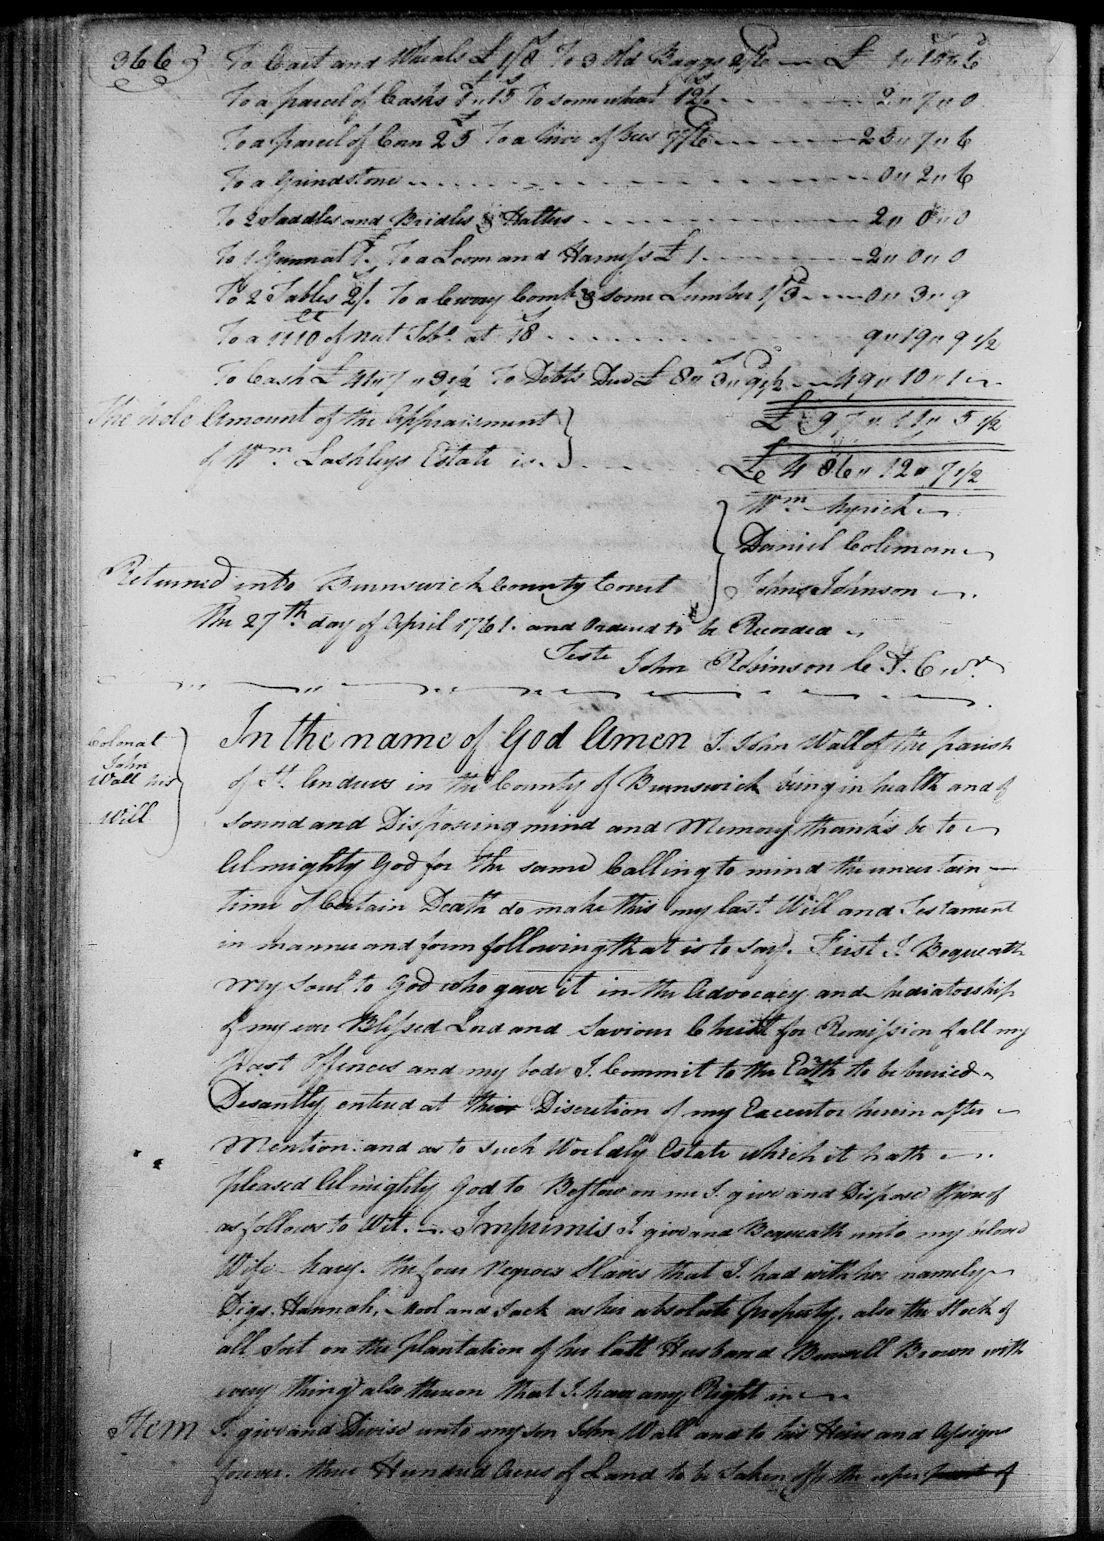 366
To Cart and Wheals £1/8 To 3 old Baggs 2/6 — £ 1" 10" 6
To a parcel of Casks 1"15 To some wheat 12/ - - - 2" 7" 0
To a parcel of Corn 23 To a hive of Bees 7/6 - - - 23" 7" 6
To a Grindstone - - - 0" 2" 6
To 2 Saddles and Bridles & Halters - - - 2" 0" 0
To 1 Gunn at £1. To a Loom and Harness £1. - - - 2" 0" 0
To 2 Tables 2/. To a Curry Comb & some Lumber 1/3 - - - 0" 3" 9
To a 1110 of nut Tobo. at 18 - - - 9" 19" 9 1/2
To Cash £41" 7" 3 1/2 To Debts Due £8" 3" 9 1/2 - - 49" 10" 1
£ 97" 11" 5 1/2
The hole Amount of the Appraisment
of Wm. Lashlys Estate is - - - £ 486" 12" 7 1/2
Wm.
Daniel Coleman
John Johnson
Returned into Brunswick County Court
the 27th. day of April 1761. and Ordered to be Recorded
Teste John Robinson C. B. Cur.
Colonal
John
Wall his
Will
In the name of God Amen I. John Wall of the parish
of St. Andrews in the County of Brunswick being in health and of
sound and Disposeing mind and Memory thanks be to
Almighty God for the same Calling to mind the uncertain
time of Certain Death do make this my last Will and Testament
in manner and form following that is to say. First I Bequeath
my Soul to God who gave it in the Advocacy and Mediatorship
of my ever Blessed Lord and Saviour Christ for Remission of all my
Past Offences and my body I. Commit to the Earth to be buried
Desantly entered at their Discretion of my Executor herein after
Mention: and as to such Worldly Estate which it hath
pleased Almighty God to Bestow on me I. give and Dispose thereof
as follows to Wit. Imprimis I give and Bequeath unto my beloved
Wife hary. the four Negroes Slaves that I. had with her namely
Digs. Hannah, Mool and Jack as her absolute property, also the Stock of
all sort on the plantation of her late Husband Burwell Brown with
every thing also thereon that I. have any Right in
Item I. give and Devise unto my son John Wall and to his Heirs and Assigns
forever. three Hundred Acres of Land to be taken off the uper part of